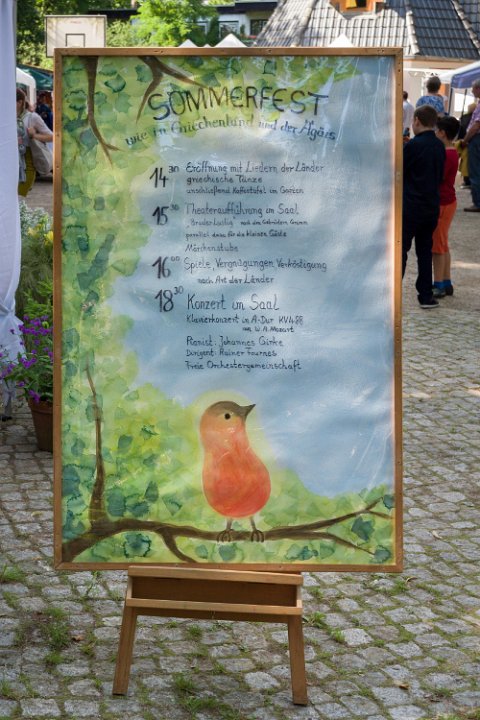 SOMMERFEST
wie in Griechenland und der Ägäis
14 30 Eröffnung mit Liedern der Länder
griechische Tänze
anschließend Kaffeetafel im Garten
15 30 Theateraufführung im Saal
"Bruder Lustig" nach den Gebrüdern Grimm
parallel dazu für die kleinen Gäste
Märchenstube
16 00 Spiele, Vergnügungen, Verköstigung
nach Art der Länder
18 30 Konzert im Saal
Klavierkonzert in A-Dur KV 488
von W. A. Mozart
Pianist: Johannes Girke
Dirigent: Rainer Fournes
Freie Orchestergemeinschaft